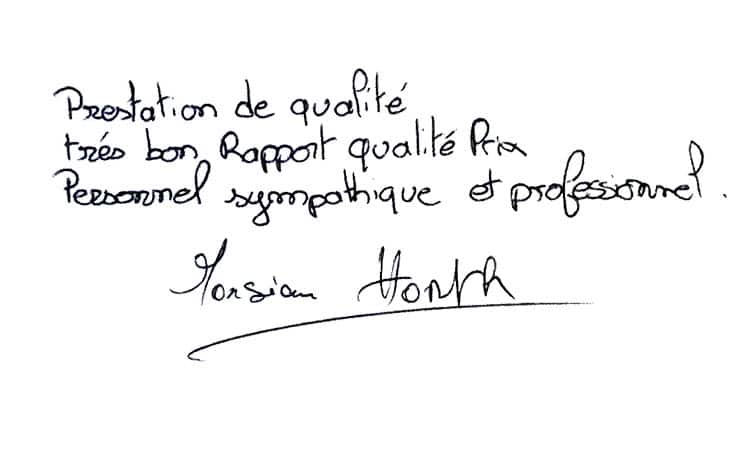 Prestation de qualité
trés bon Rapport qualité Prix
Personnel sympathique et professionnel.